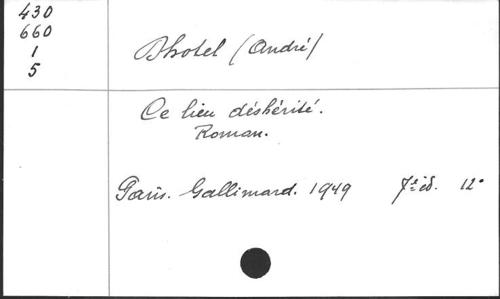 430
660
1
5
Dhotel (André)
Ce lieu déshérité.
Roman.
Paris. Gallimard. 1949 7e éd. 12°